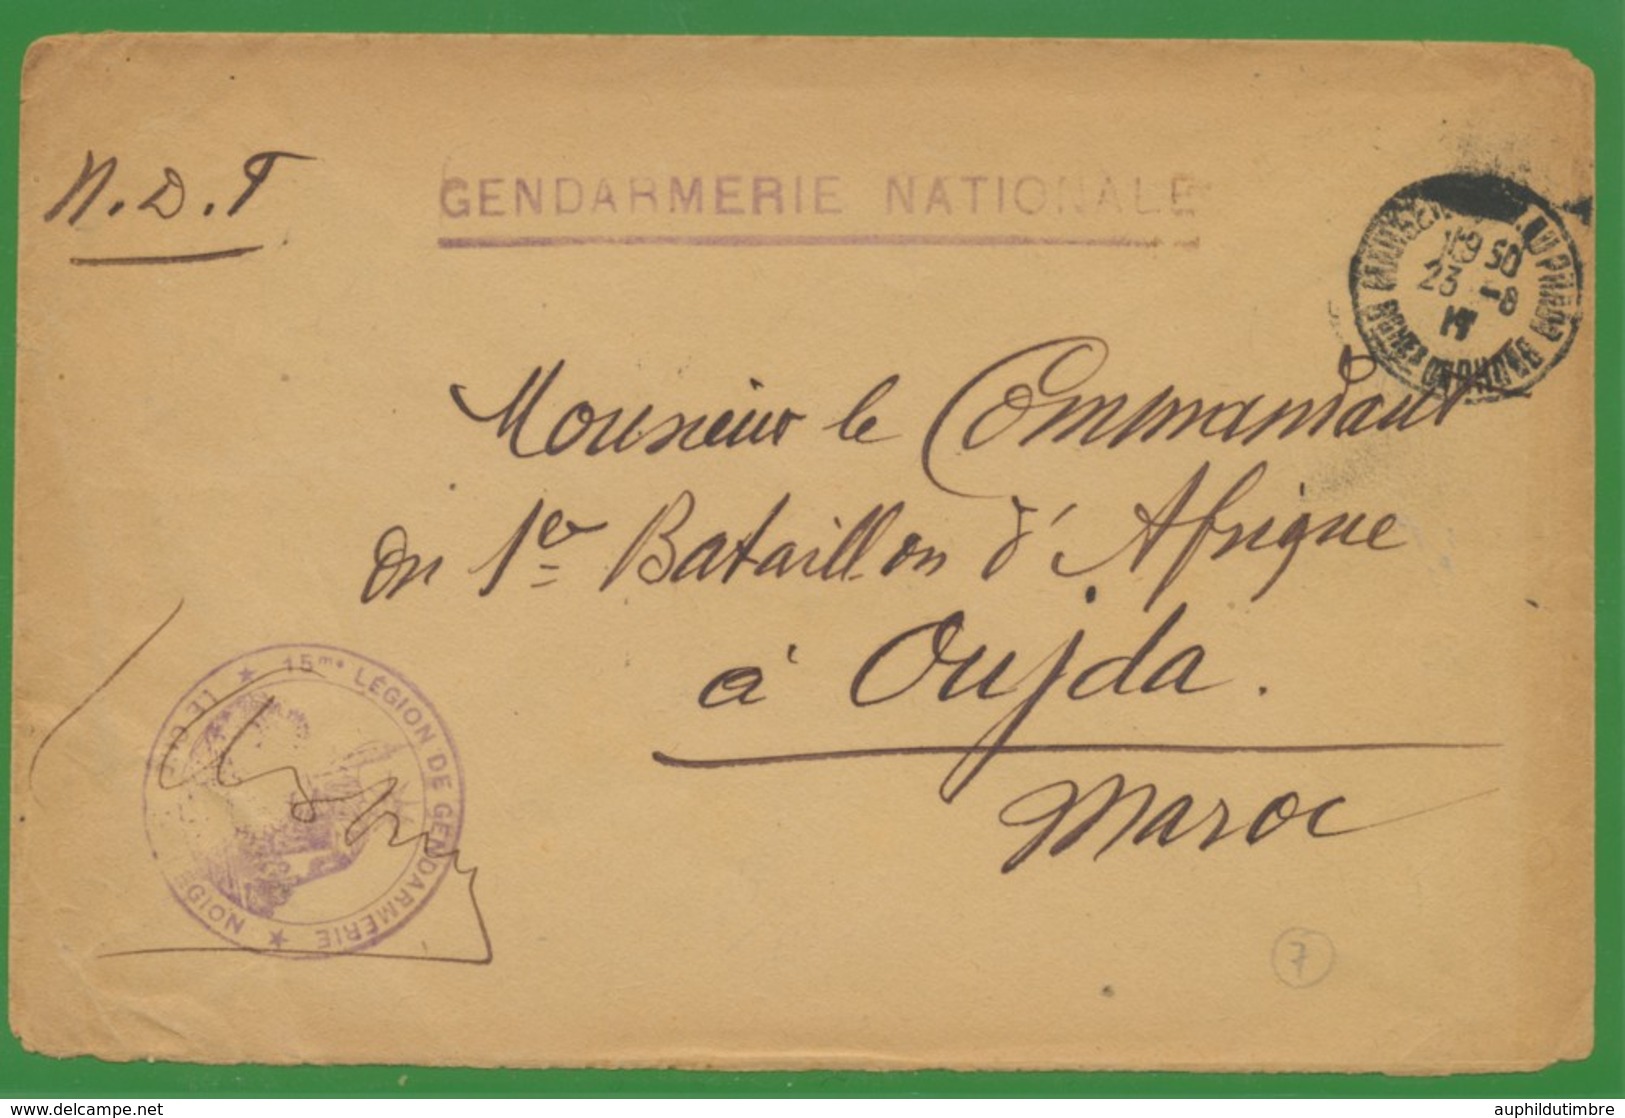 N.D.T
GENDARMERIE NATIONALE
23 - 8
17
Monsieur le Commandant
du 1er Bataillon d'Afrique
à Oujda.
Maroc
★ 15me LÉGION DE GENDARMERIE ★
LE LÉGION
7
www.delcampe.net
auphildutimbre